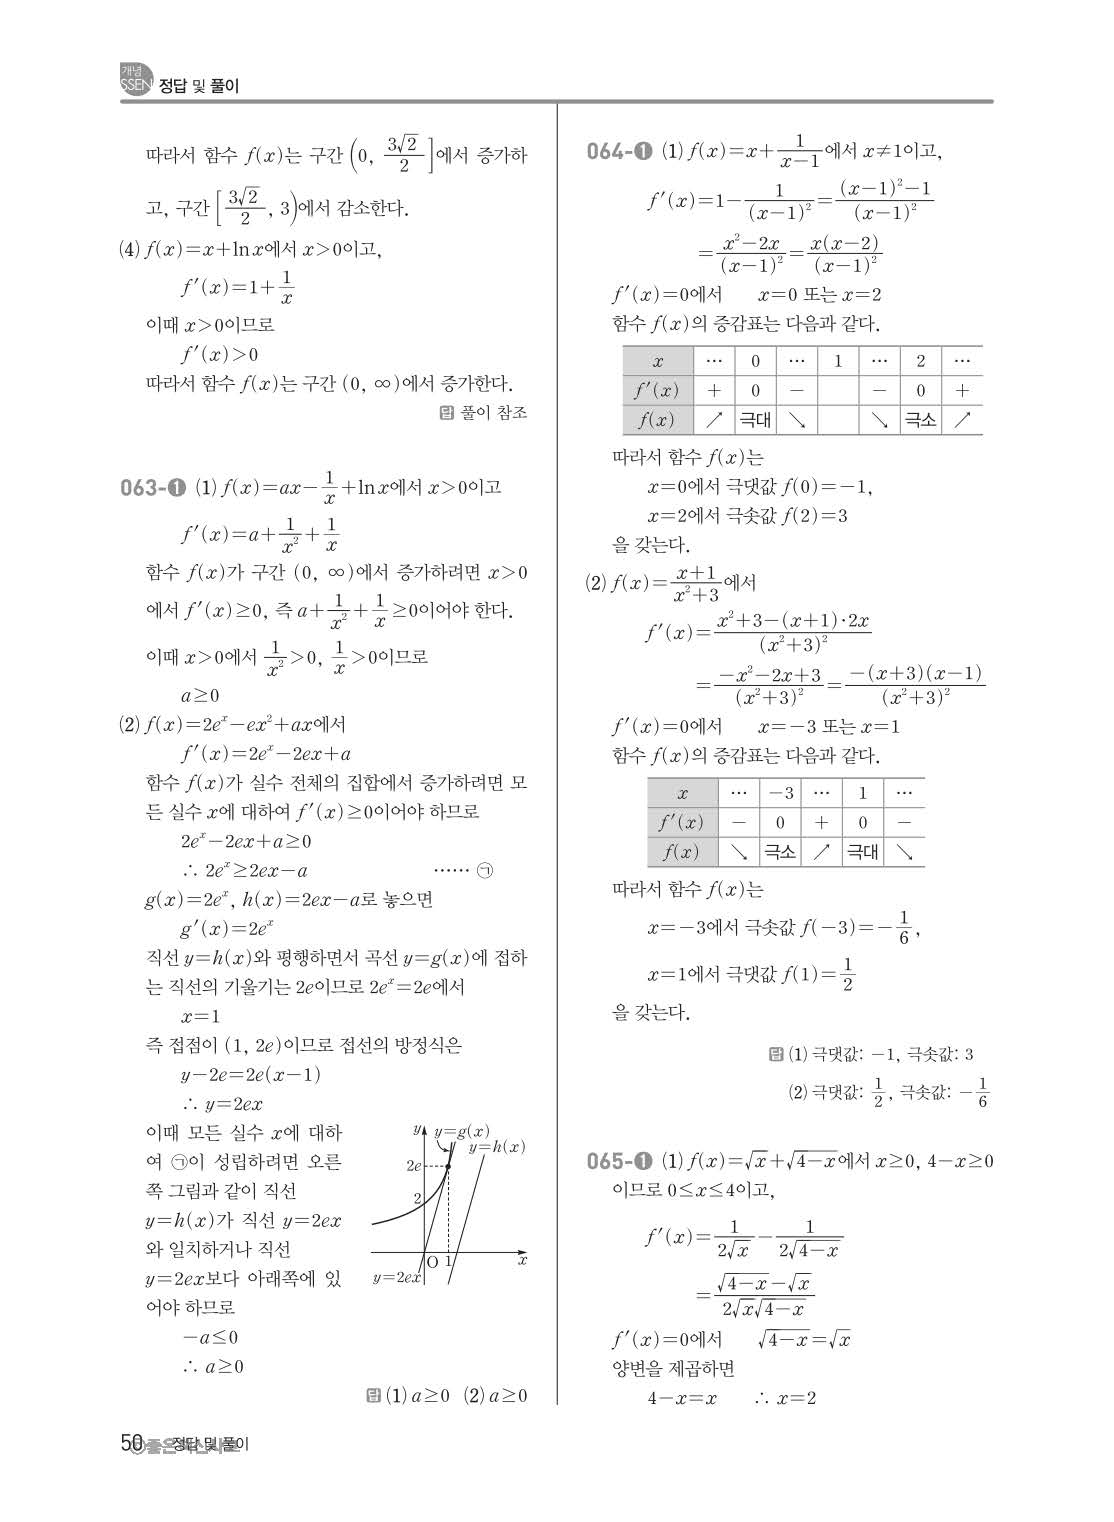 개념
SSEN 정답 및 풀이
따라서 함수 f(x)는 구간 (0, 3√2/2]에서 증가하
고, 구간 [3√2/2, 3)에서 감소한다.
(4) f(x)=x+ln x에서 x>0이고,
f′(x)=1+1/x
이때 x>0이므로
f′(x)>0
따라서 함수 f(x)는 구간 (0, ∞)에서 증가한다.
답 풀이 참조
063-❶ (1) f(x)=ax-1/x+ln x에서 x>0이고
f′(x)=a+1/x²+1/x
함수 f(x)가 구간 (0, ∞)에서 증가하려면 x>0
에서 f′(x)≥0, 즉 a+1/x²+1/x≥0이어야 한다.
이때 x>0에서 1/x²>0, 1/x>0이므로
a≥0
(2) f(x)=2eˣ-ex²+ax에서
f′(x)=2eˣ-2ex+a
함수 f(x)가 실수 전체의 집합에서 증가하려면 모
든 실수 x에 대하여 f′(x)≥0이어야 하므로
2eˣ-2ex+a≥0
∴ 2eˣ≥2ex-a …… ㉠
g(x)=2eˣ, h(x)=2ex-a로 놓으면
g′(x)=2eˣ
직선 y=h(x)와 평행하면서 곡선 y=g(x)에 접하
는 직선의 기울기는 2e이므로 2eˣ=2e에서
x=1
즉 접점이 (1, 2e)이므로 접선의 방정식은
y-2e=2e(x-1)
∴ y=2ex
이때 모든 실수 x에 대하
여 ㉠이 성립하려면 오른
쪽 그림과 같이 직선
y=h(x)가 직선 y=2ex
와 일치하거나 직선
y=2ex보다 아래쪽에 있
어야 하므로
y y=g(x)
y=h(x)
2e
2
O 1 x
y=2ex
-a≤0
∴ a≥0
답 (1) a≥0 (2) a≥0
064-❶ (1) f(x)=x+1/(x-1)에서 x≠1이고,
f′(x)=1-1/(x-1)²=((x-1)²-1)/(x-1)²
=(x²-2x)/(x-1)²=x(x-2)/(x-1)²
f′(x)=0에서 x=0 또는 x=2
함수 f(x)의 증감표는 다음과 같다.
x … 0 … 1 … 2 …
f′(x) + 0 - - 0 +
f(x) ↗ 극대 ↘ ↘ 극소 ↗
따라서 함수 f(x)는
x=0에서 극댓값 f(0)=-1,
x=2에서 극솟값 f(2)=3
을 갖는다.
(2) f(x)=(x+1)/(x²+3)에서
f′(x)=(x²+3-(x+1)·2x)/(x²+3)²
=(-x²-2x+3)/(x²+3)²=-(x+3)(x-1)/(x²+3)²
f′(x)=0에서 x=-3 또는 x=1
함수 f(x)의 증감표는 다음과 같다.
x … -3 … 1 …
f′(x) - 0 + 0 -
f(x) ↘ 극소 ↗ 극대 ↘
따라서 함수 f(x)는
x=-3에서 극솟값 f(-3)=-1/6,
x=1에서 극댓값 f(1)=1/2
을 갖는다.
답 (1) 극댓값: -1, 극솟값: 3
(2) 극댓값: 1/2, 극솟값: -1/6
065-❶ (1) f(x)=√x+√(4-x)에서 x≥0, 4-x≥0
이므로 0≤x≤4이고,
f′(x)=1/(2√x)-1/(2√(4-x))
=(√(4-x)-√x)/(2√x√(4-x))
f′(x)=0에서 √(4-x)=√x
양변을 제곱하면
4-x=x ∴ x=2
50 정답 및 풀이